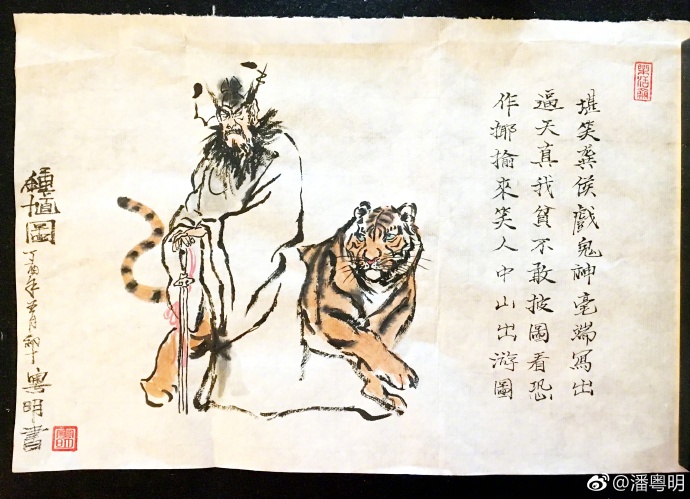 堪笑龔侯戲鬼神毫端寫出
逼天真我貧不敢披圖看恐
作揶揄來笑人中山出游圖
鍾馗圖
丁酉年
粵明書
@潘粤明